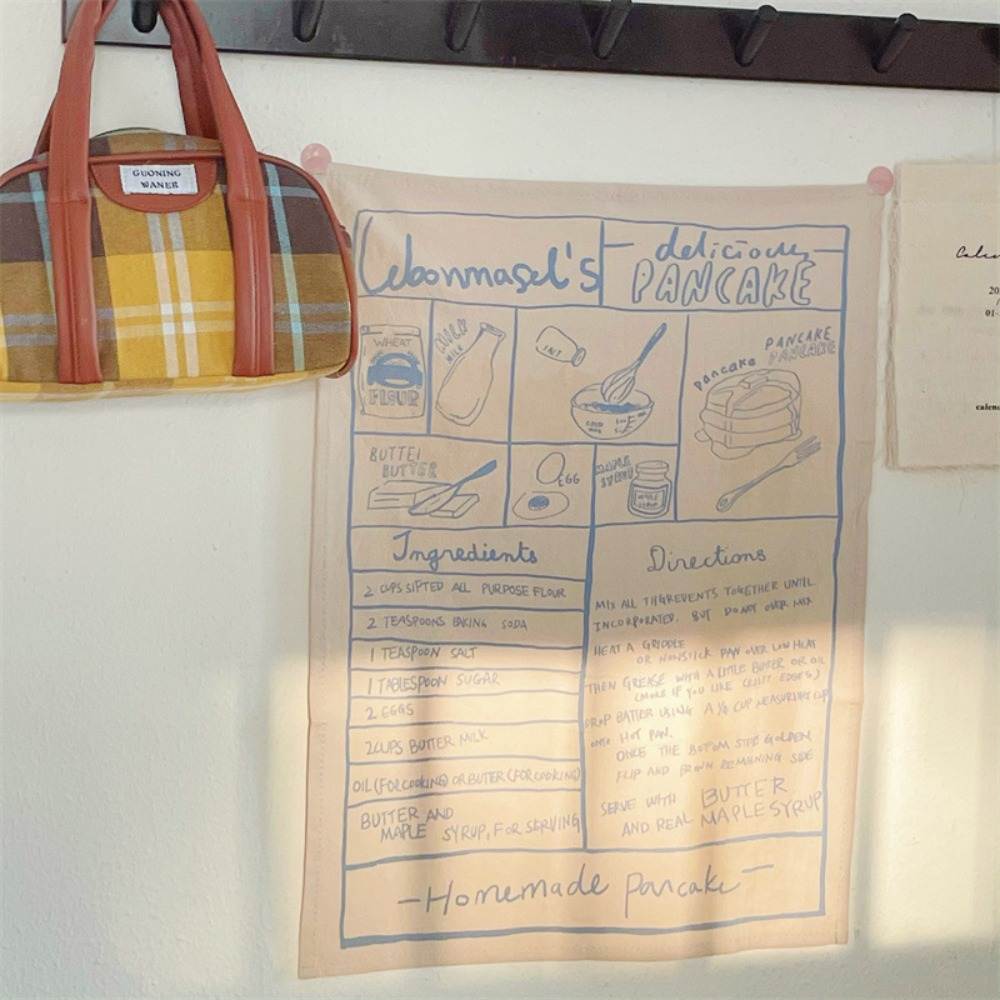 GUONING
WANER
delicious
PANCAKE
WHEAT
FLOUR
MILK
SALT
PANCAKE
PANCAKE
pancake
BUTTER
EGG
MAPLE
SYRUP
MAPLE
SYRUP
Ingredients
2 CUPS SIFTED ALL PURPOSE FLOUR
2 TEASPOONS BAKING SODA
1 TEASPOON SALT
1 TABLESPOON SUGAR
2 EGGS
2 CUPS BUTTER MILK
OIL (FOR COOKING) OR BUTER (FOR COOKING)
BUTTER AND
MAPLE SYRUP, FOR SERVING
Directions
MIX ALL TOGETHER UNTIL
INCORPORATED, BUT DO NOT OVER MIX
HEAT A GRIDDLE
OR NONSTICK PAN OVER LOW HEAT
THEN GREASE WITH A LITTLE BUTTER OR OIL
(MORE IF YOU LIKE EDGES)
DROP BATTER USING A CUP MEASURING CUP
ONTO HOT PAN.
ONCE THE BOTTOM SIDE GOLDEN
FLIP AND BROWN REMAINING SIDE
SERVE WITH BUTTER
AND REAL MAPLE SYRUP
-Homemade pancake-
20
01-